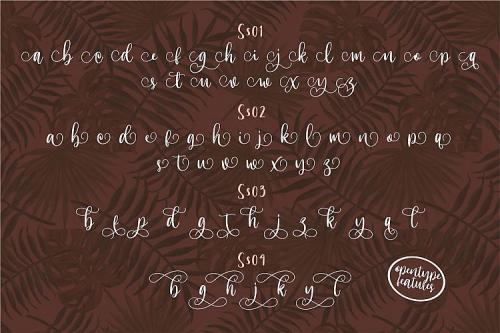 Ss01
a b c d e f g h i j k l m n o p q
s t u v w x y z
Ss02
a b c d e f g h i j k l m n o p q
s t u v w x y z
Ss03
b f p d g t h j z k y q l
Ss04
b g h j k y l
opentype
features